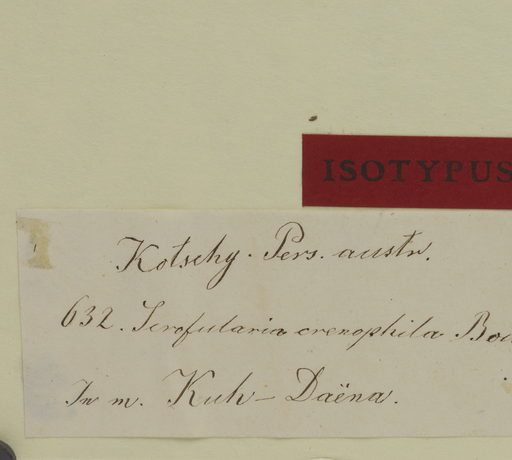 ISOTYPUS
Kotschy. Pers. austr.
632. Scrofularia crenophila Boi
In m. Kuh-Daëna.